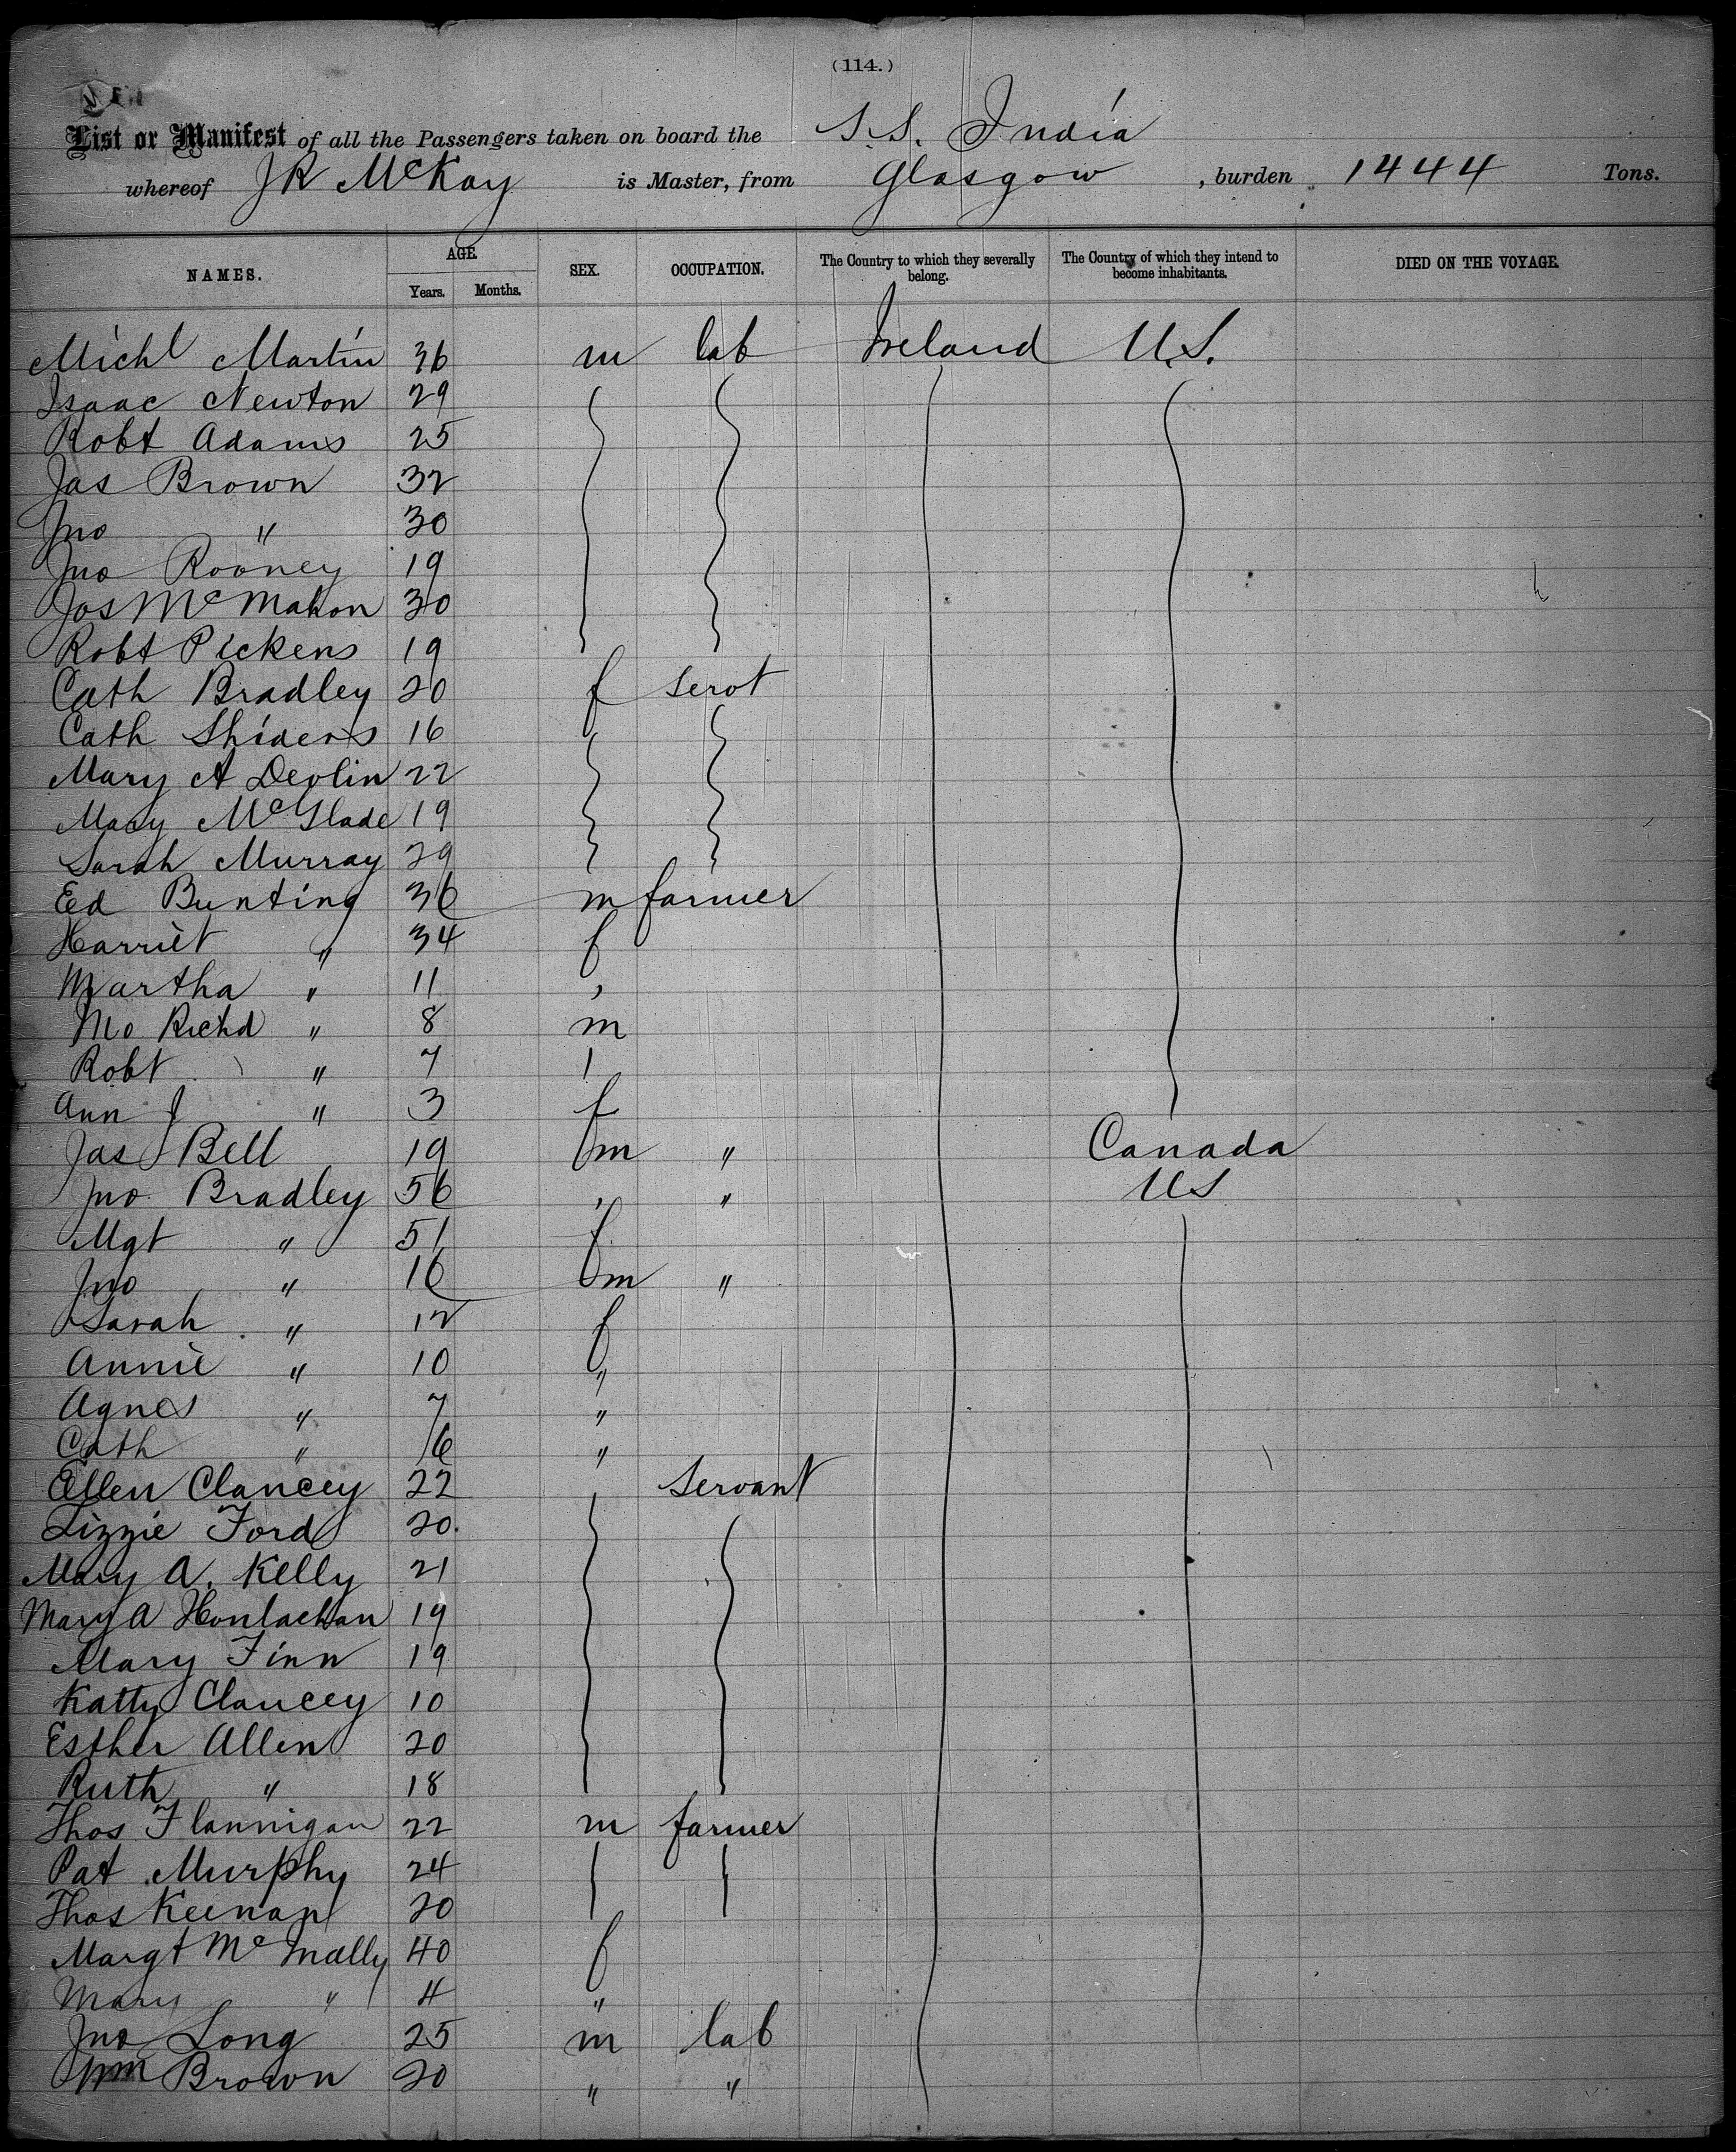 (114.)
List or Manifest of all the Passengers taken on board the S.S. India
whereof JR McKay is Master, from Glasgow , burden 1444 Tons.
NAMES. AGE. Years. Months. SEX. OCCUPATION. The Country to which they severally belong. The Country of which they intend to become inhabitants. DIED ON THE VOYAGE.
Michl Martin 36 m lab Ireland U.S.
Isaac Newton 29
Robt Adams 25
Jas Brown 32
Jno " 30
Jno Rooney 19
Jos McMahon 30
Robt Pickens 19
Cath Bradley 20 f servt
Cath 16
Mary A Devlin 22
Mary McGlade 19
Sarah Murray 29
Ed Bunting 36 m farmer
Harriet " 34 f
Martha " 11 "
Richd " 8 m
Robt " 7
Ann J " 3 f
Jas Bell 19 m " Canada
Jno Bradley 56 " " US
Mgt " 51 f
Jno " 16 m "
Sarah " 12 f
Annie " 10 "
Agnes " 7 "
Cath " 6 "
Ellen Clancey 22 servant
Lizzie Ford 20
Mary A. Kelly 21
Mary A 19
Mary Finn 19
Katty Clancey 10
Esther Allen 20
Ruth " 18
Thos Flannigan 22 m farmer
Pat Murphy 24
Thos Keenan 20
Margt McInally 40 f
Mary " 4 "
Jno Long 25 m lab
Wm Brown 20 " "